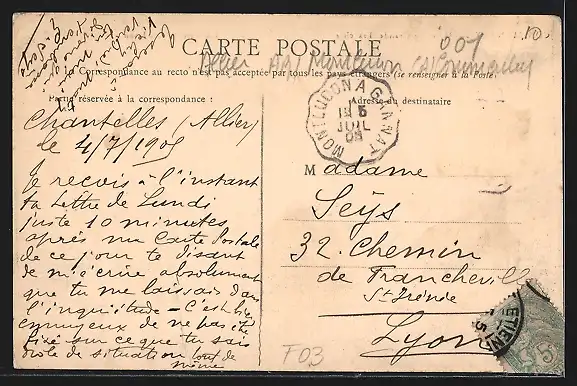 CARTE POSTALE
007
10
Allier Montluçon
Correspondance au recto n'est pas acceptée par tous les pays étrangers (se renseigner à la Poste)
Partie réservée à la correspondance :
Adresse du destinataire
Chantelles (Allier)
le 4/7/1905
Je reçois à l'instant
ta lettre de Lundi
juste 10 minutes
après ma Carte Postale
de ce jour te disant
de m'écrire absolument
que tu me laissais dans
l'inquiétude - C'est bien
ennuyeux de ne pas être
fixé sur ce que tu sais
drôle de situation tout de
même
MONTLUCON A GANNAT
5
JUIL
05
Madame
Seÿs
32. Chemin
de Francheville
St Irénée
Lyon
F03
ETIEN
5